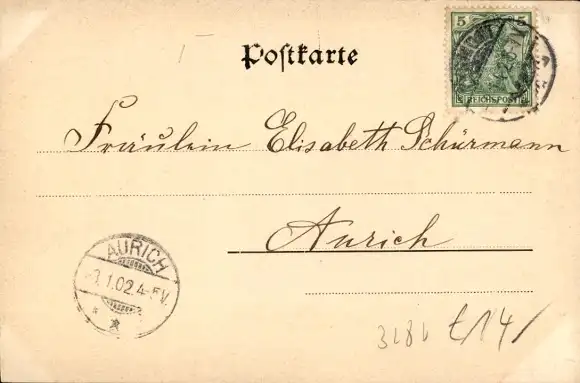 Postkarte
5 5
REICHSPOST
Fräulein Elisabeth Schürmann
Aurich
AURICH
1.02.4-5V.